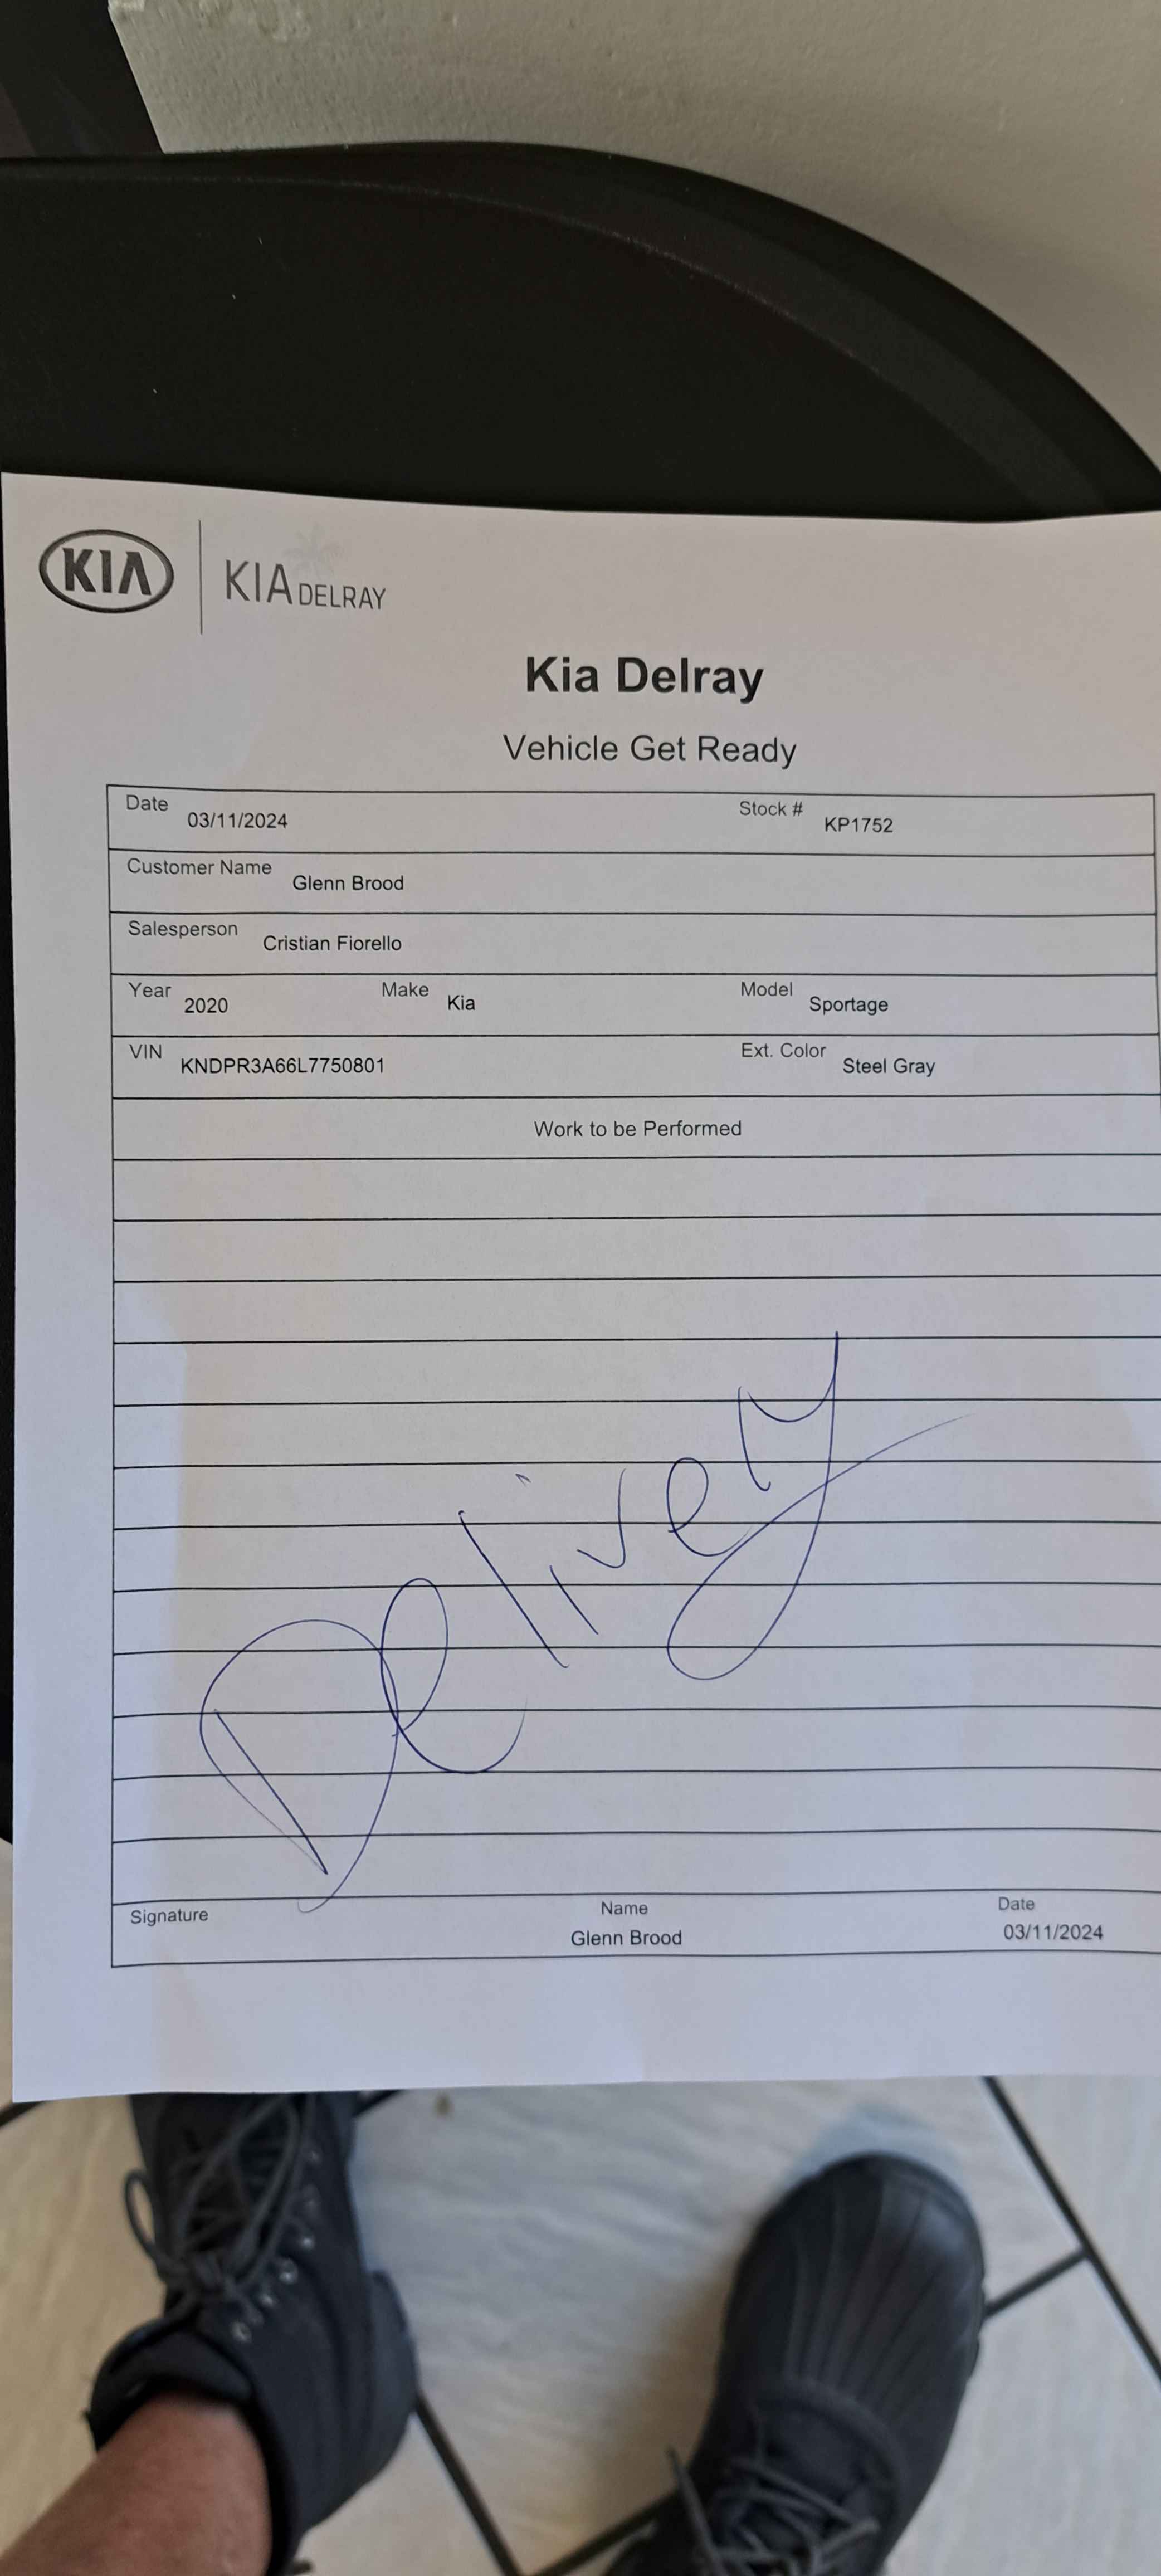 KIA KIA DELRAY
Kia Delray
Vehicle Get Ready
Date 03/11/2024 Stock # KP1752
Customer Name Glenn Brood
Salesperson Cristian Fiorello
Year 2020 Make Kia Model Sportage
VIN KNDPR3A66L7750801 Ext. Color Steel Gray
Work to be Performed
Delivery
Signature Name Date
Glenn Brood 03/11/2024